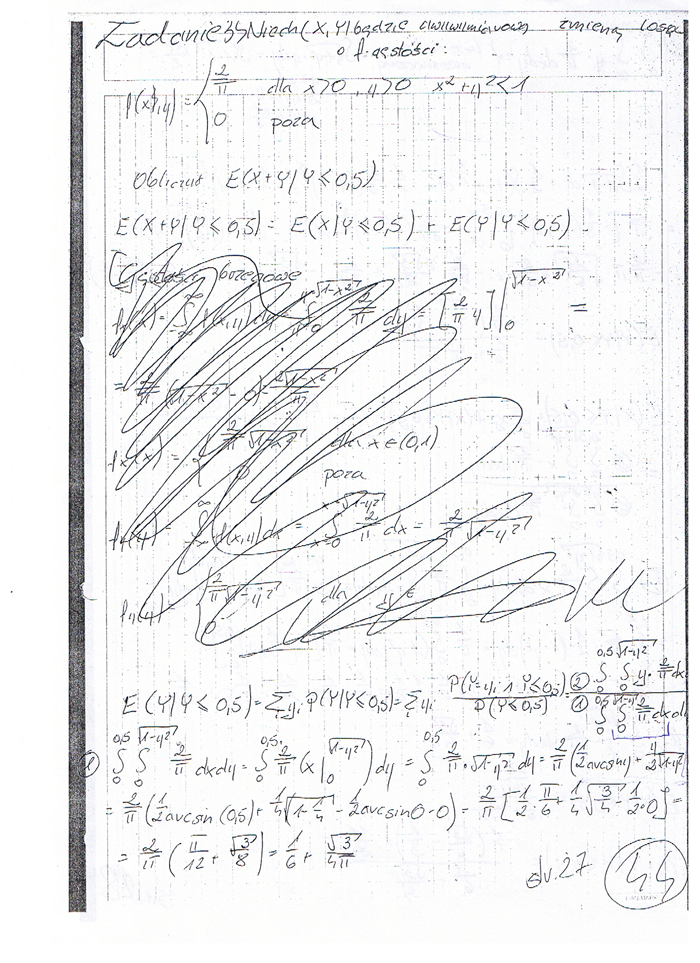 Zadanie 33 Niech (X, Y) będzie dwuwymiarową zmienną losow
o f. gęstości:
f(x,y) = { 2/π dla x>0, y>0 x²+y²<1
0 poza
Obliczyć E(X+Y|Y≤0,5)
E(X+Y|Y≤0,5) = E(X|Y≤0,5) + E(Y|Y≤0,5)
Gęstości brzegowe
f₁(x) = ∫_{-∞}^{∞} f(x,y) dy = ∫_0^{√(1-x²)} 2/π dy = [2/π y] |_0^{√(1-x²)} =
= 2/π (√(1-x²) - 0) = 2√(1-x²)/π
fx(x) = { 2/π √(1-x²) dla x∈(0,1)
0 poza
f_y(y) = ∫_{-∞}^{∞} f(x,y) dx = ∫_{x=0}^{x=√(1-y²)} 2/π dx = 2/π √(1-y²)
f_y(y) = { 2/π √(1-y²) dla y∈
0
E(Y|Y≤0,5) = Σ y_i P(Y|Y≤0,5) = Σ y_i P(Y=y_i ∧ Y≤0,5)/P(Y≤0,5) = ② ∫_0^{0,5} ∫_0^{√(1-y²)} y · 2/π dx / ① ∫_0^{0,5} ∫_0^{√(1-y²)} 2/π dx dy
① ∫_0^{0,5} ∫_0^{√(1-y²)} 2/π dx dy = ∫_0^{0,5} 2/π (x |_0^{√(1-y²)}) dy = ∫_0^{0,5} 2/π · √(1-y²) dy = 2/π (1/2 arcsin y + y/2 √(1-y²)
= 2/π (1/2 arcsin (0,5) + 1/4 √(1-1/4) - 1/2 arcsin 0 - 0) = 2/π [1/2 · π/6 + 1/4 √(3/4) - 1/2 · 0] =
= 2/π (π/12 + √3/8) = 1/6 + √3/4π
str. 27
44